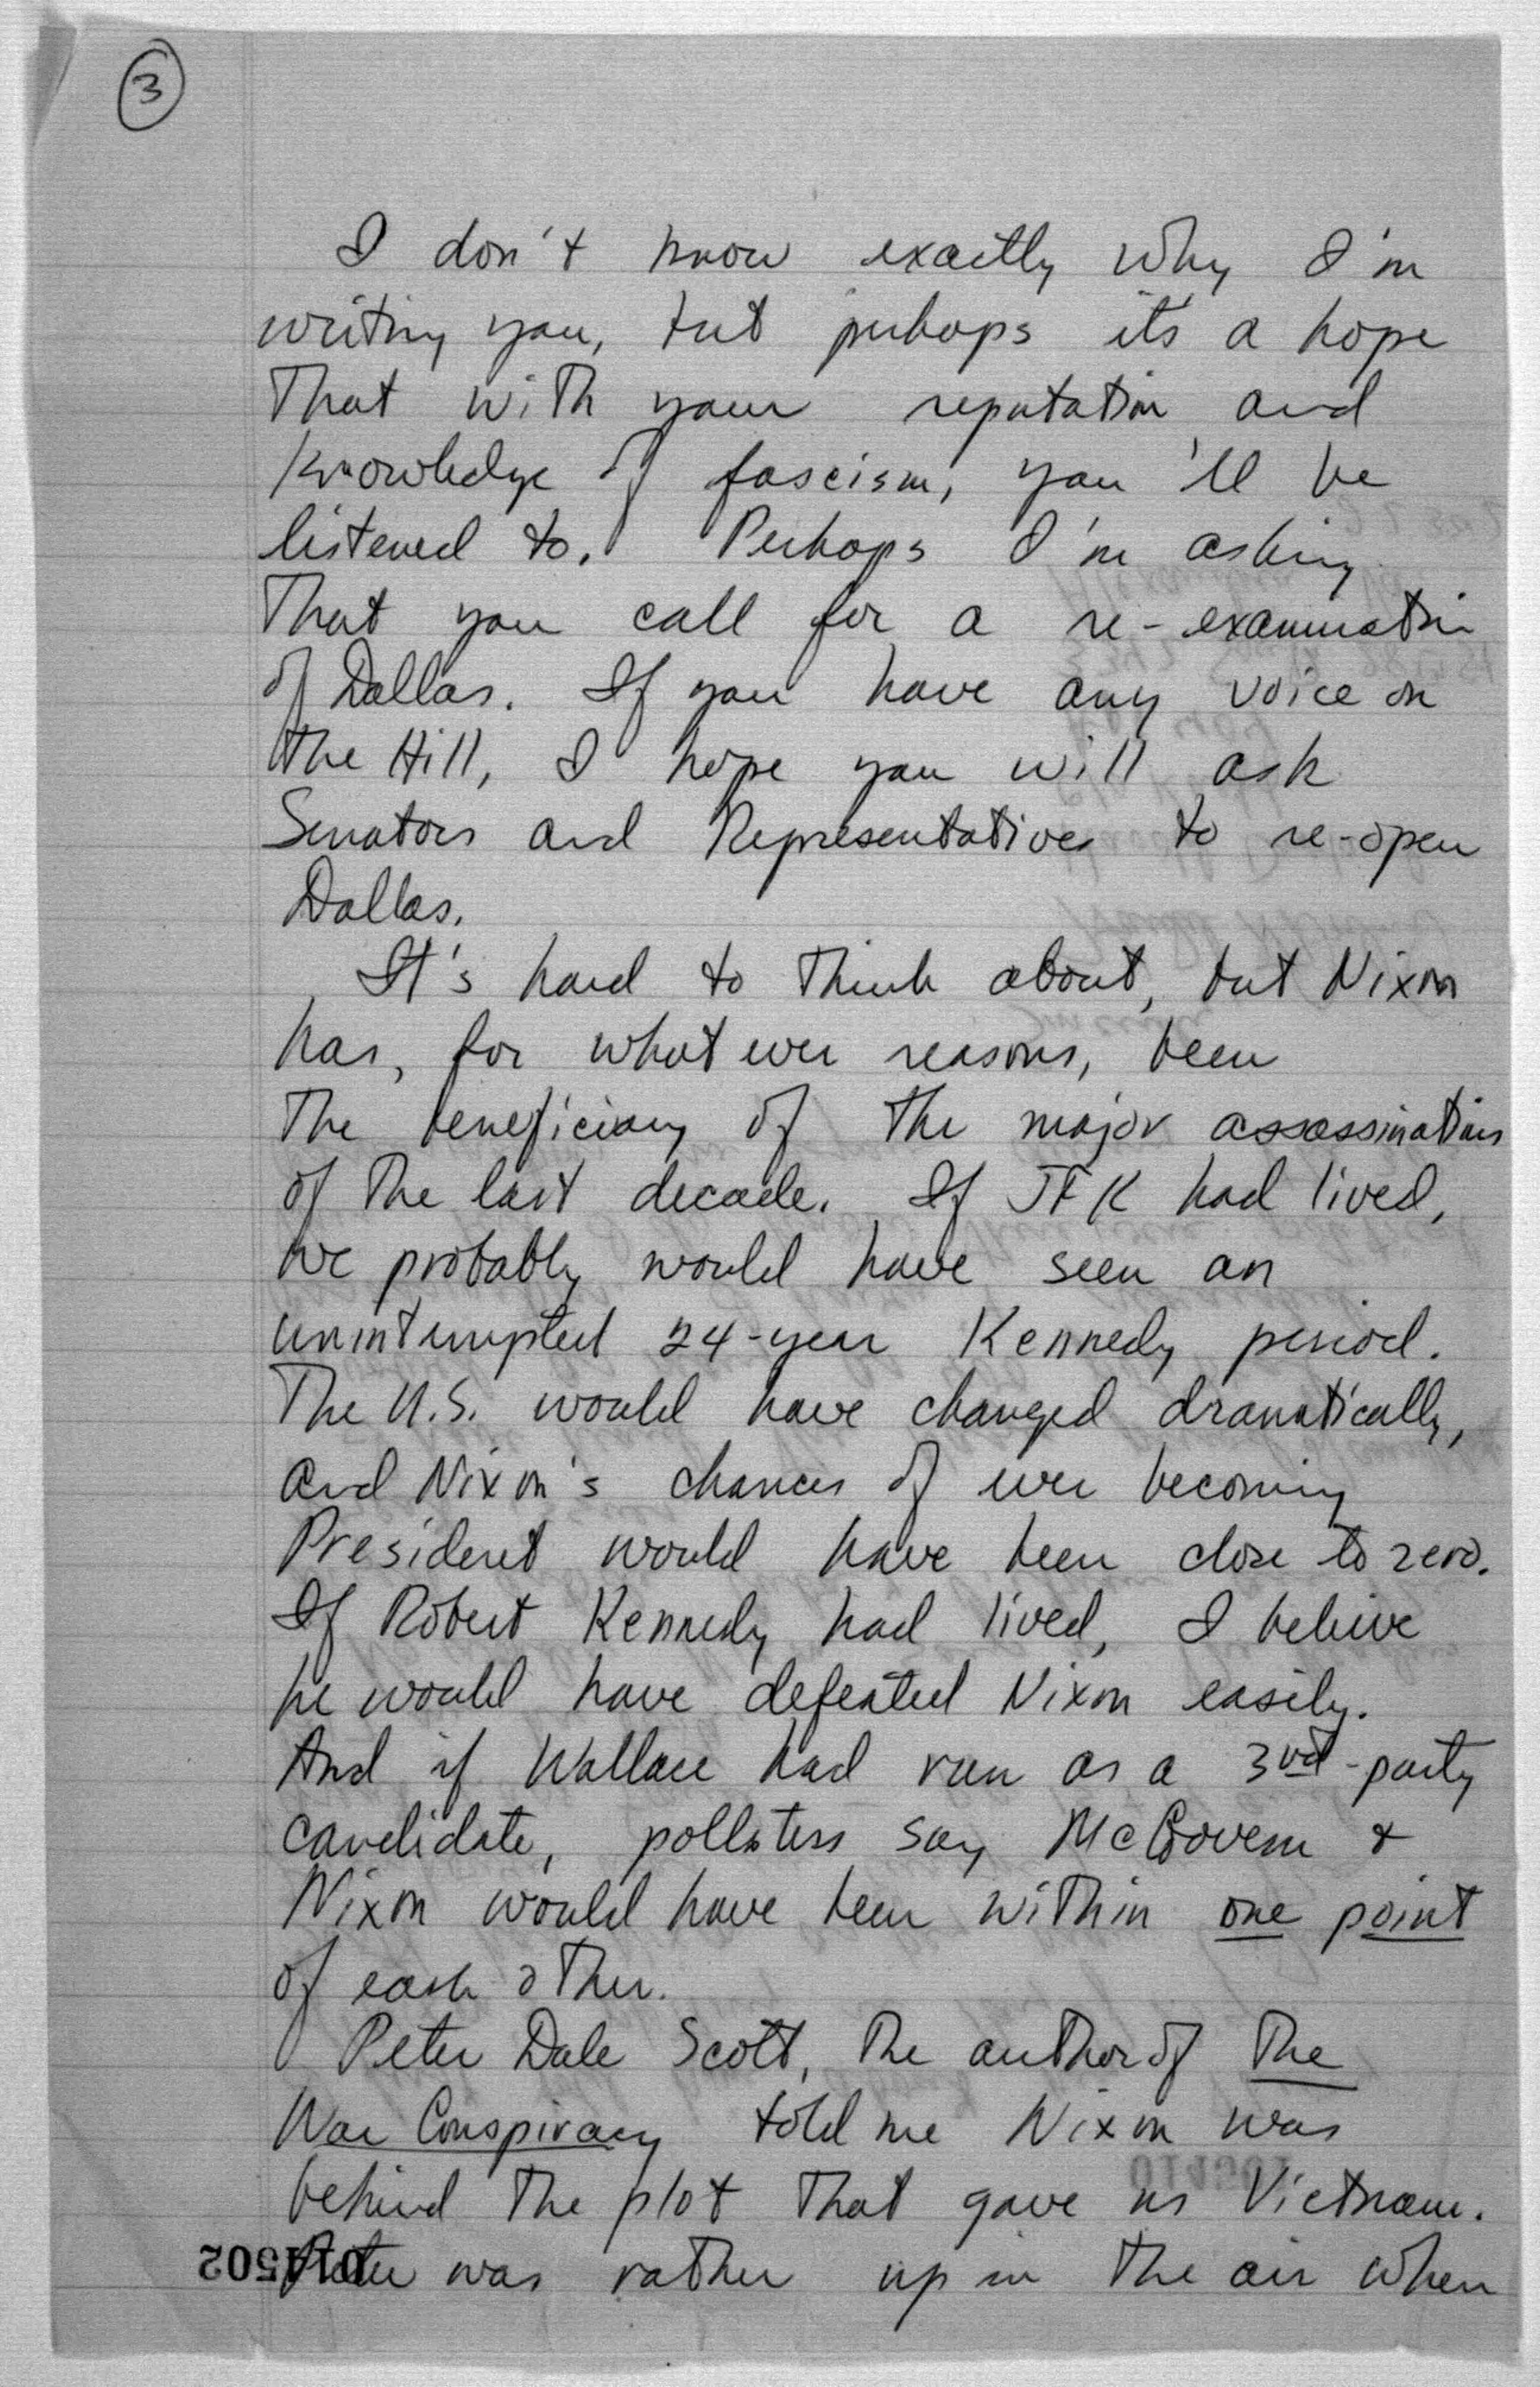 3
I don't know exactly why I'm
writing you, but perhaps it's a hope
That with your reputation and
Knowledge of fascism, you'll be
listened to. Perhaps I'm asking
That you call for a re-examination
of Dallas. If you have any voice on
the Hill, I hope you will ask
Senators and Representatives to re-open
Dallas.
It's hard to think about, but Nixon
has, for what ever reasons, been
The beneficiary of the major assassinations
of the last decade. If JFK had lived,
we probably would have seen an
uninterrupted 24-year Kennedy period.
The U.S. would have changed dramatically,
and Nixon's chances of ever becoming
President would have been close to zero.
If Robert Kennedy had lived, I believe
he would have defeated Nixon easily.
And if Wallace had run as a 3rd-party
candidate, pollsters say McGovern &
Nixon would have been within one point
of each other.
Peter Dale Scott, the author of The
War Conspiracy told me Nixon was
behind the plot that gave us Vietnam.
Peter was rather up in the air when
014502